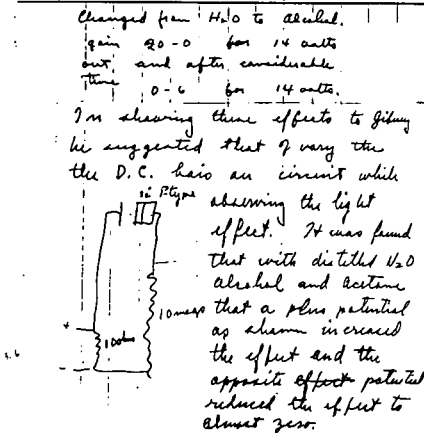 Changed from H2O to alcohol.
gain 20-0 for 14 watts
out and after considerable
time 0-6 for 14 watts.
In showing these effects to Gibney
he suggested that I vary the
the D.C. bias on circuit while
Si P type
observing the light
effect. It was found
that with distilled H2O
alcohol and acetone
10 megs
that a plus potential
as shown increased
+
the effect and the
-
opposite effect potential
reduced the effect to
almost zero.